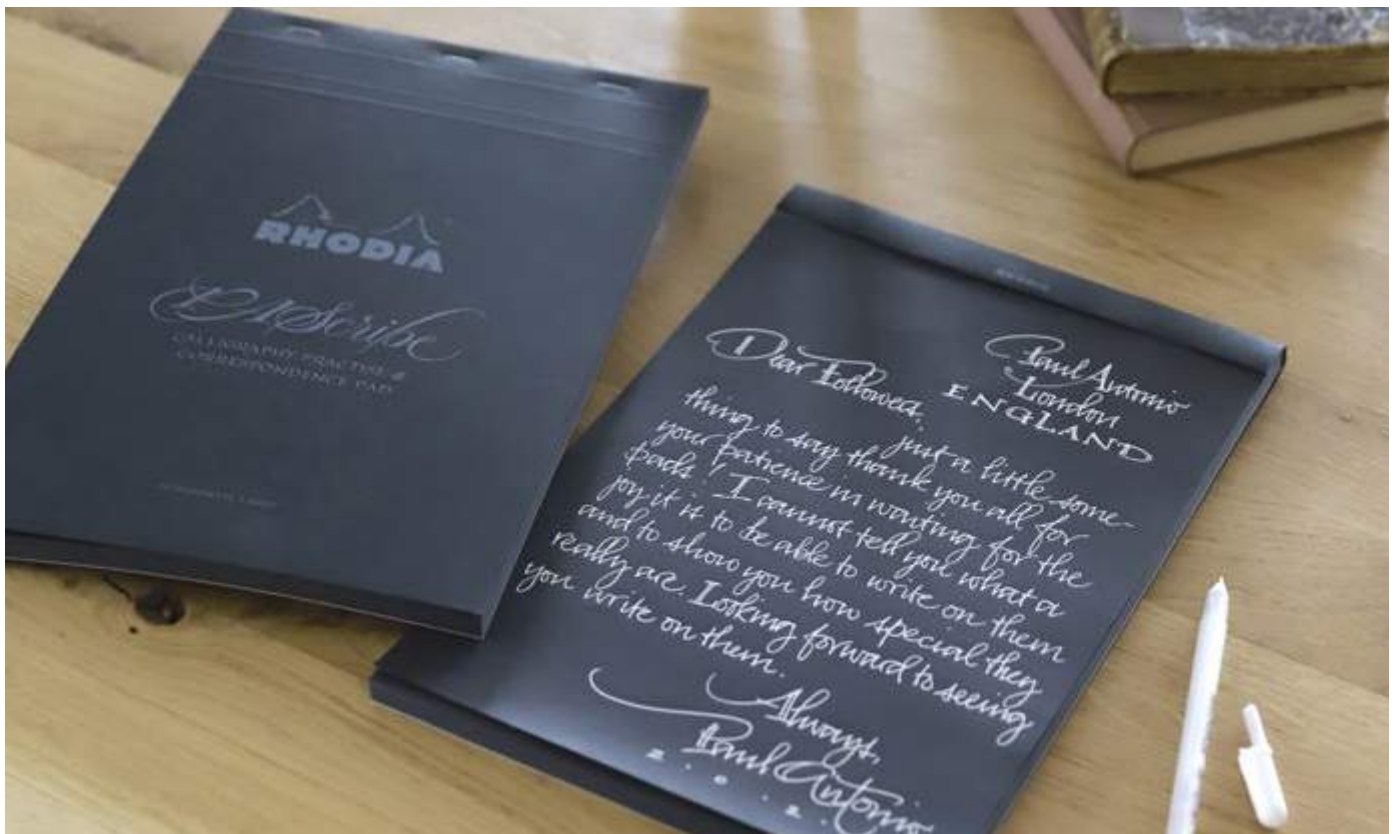 RHODIA
PAScribe
CALLIGRAPHY PRACTISE &
CORRESPONDENCE PAD
Paul Antonio
London
ENGLAND
Dear Followers,
just a little some-
thing to say thank you all for
your patience in waiting for the
pads! I cannot tell you what a
joy it is to be able to write on them
and to show you how special they
really are. Looking forward to seeing
you write on them.
Always,
Paul Antonio